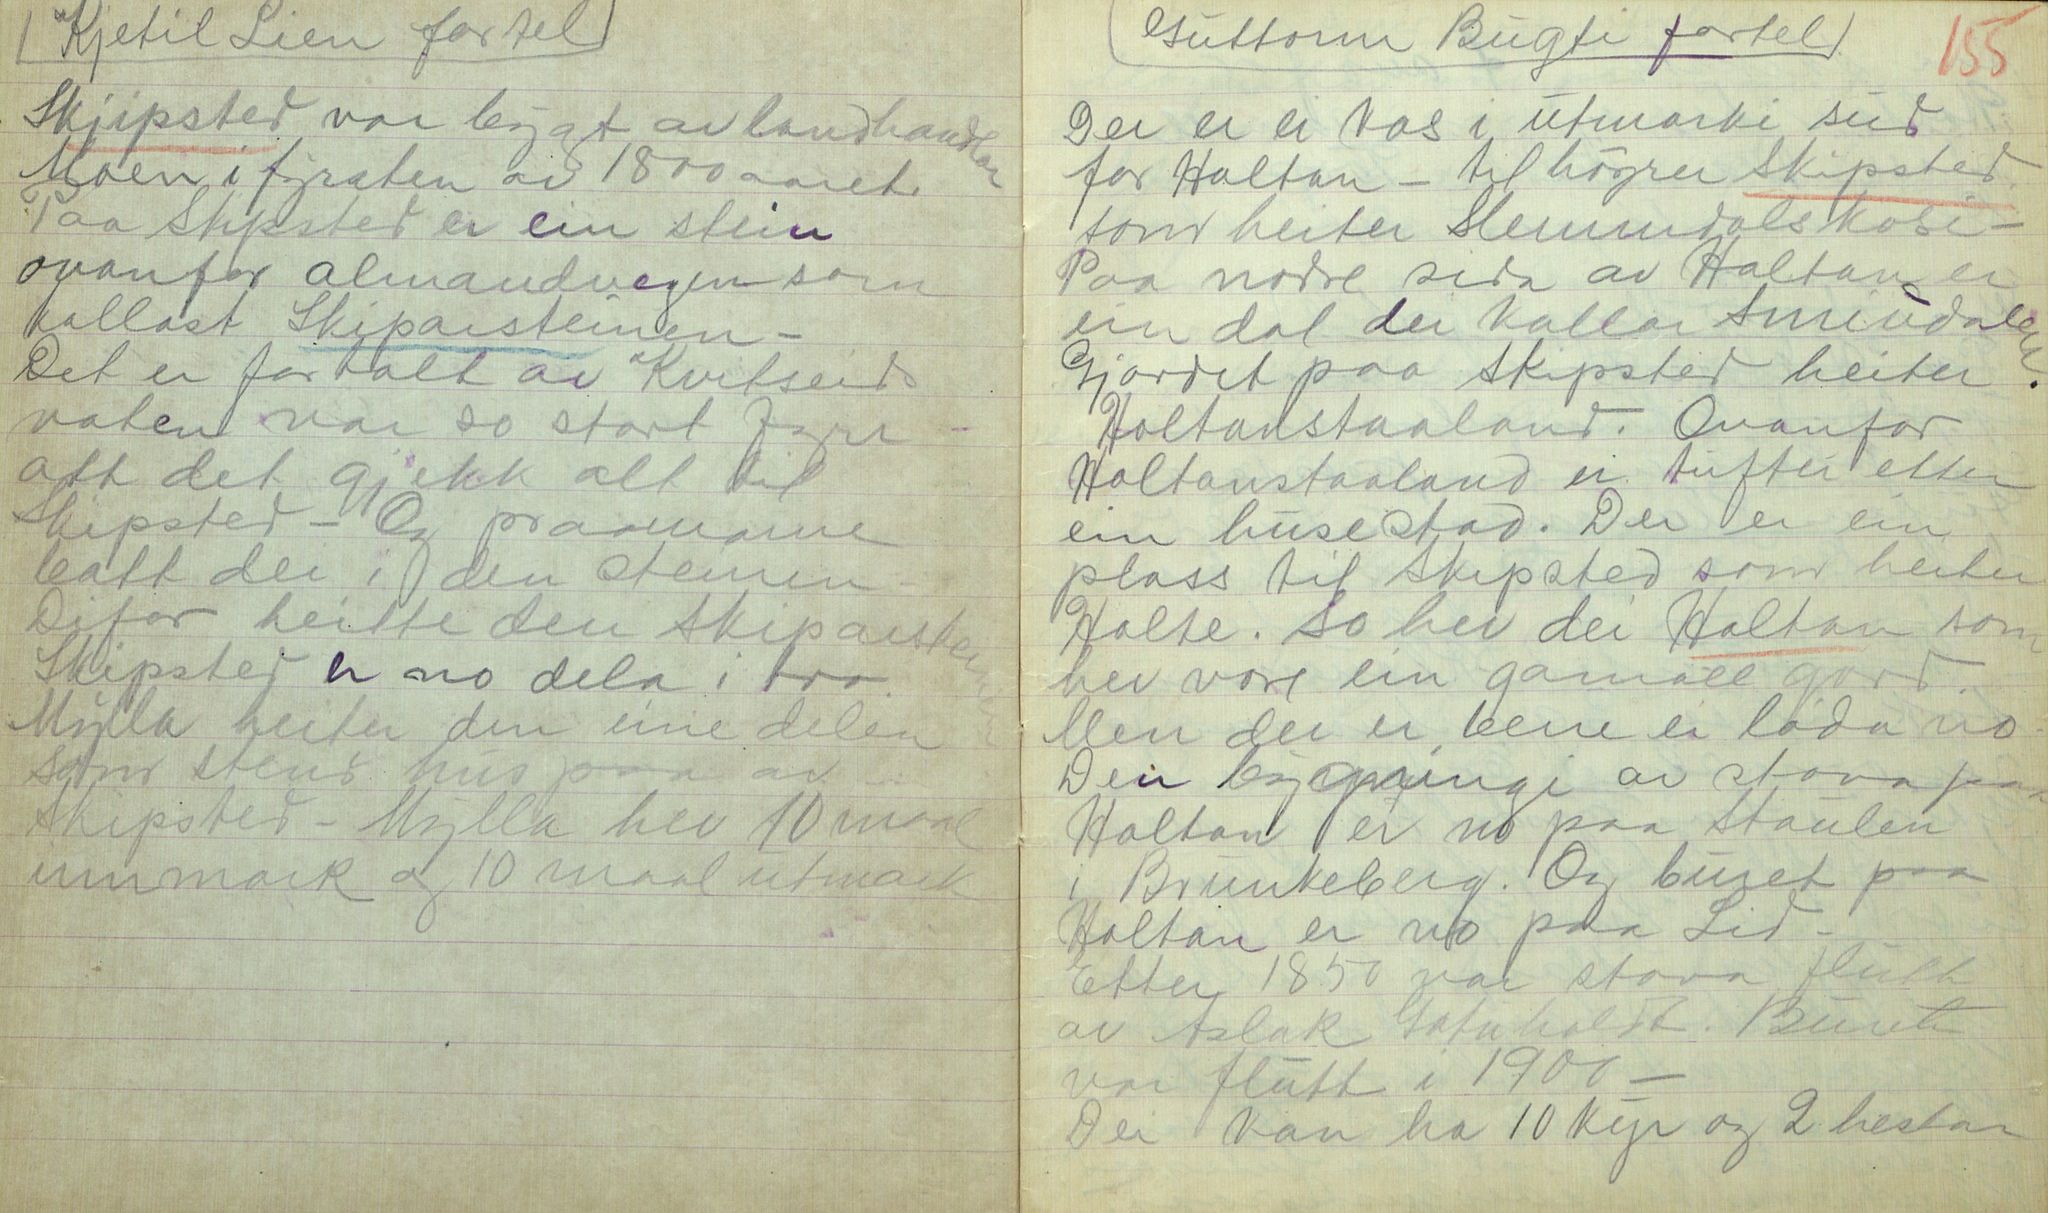 Kjetil Lien fortel
Skjipsted var bygt av landhandlar
Moen i fyrsten av 1800 aaret.
Paa Skipsted er ein stein
ovanfor almandvegen som
kallast Skiparsteinen –
Det er fortalt av Kvitseid
vaten var so stort fyrr
att det gjekk alt til
Skipsted – Og praamarne
batt dei i den steinen
Difor heitte den Skiparsteinen
Skipsted er no dela i tvo.
Mylla heiter den eine delen
som stend hus paa av
Skipsted – Mylla hev 10 maal
innmark og 10 maal utmark
Guttorm Bugti fortel
155
Der er ei kos i utmarki sud
for Holtan – til högre Skipsted
som heiter Slemmdalskosi –
Paa nodre sida av Holtan er
ein dal dei kallar Smiudalen.
Gjordet paa Skipsted heiter
Holtanstaaland. Ovanfor
Holtanstaaland er tufter etter
ein husestad. Der er ein
plass til Skipsted som heiter
Holte. So hev dei Holtan som
hev vore ein gamall gard.
Men der er berre ei löda no
Den bygningi av stova paa
Holtan er no paa Staulen
i Brunkeberg. Og buret paa
Holtan er no paa Lid –
Etter 1850 var stova flutt
av Aslak Gatuholdt. Buret
var flutt i 1900 –
Dei kan ha 10 kyr og 2 hestar